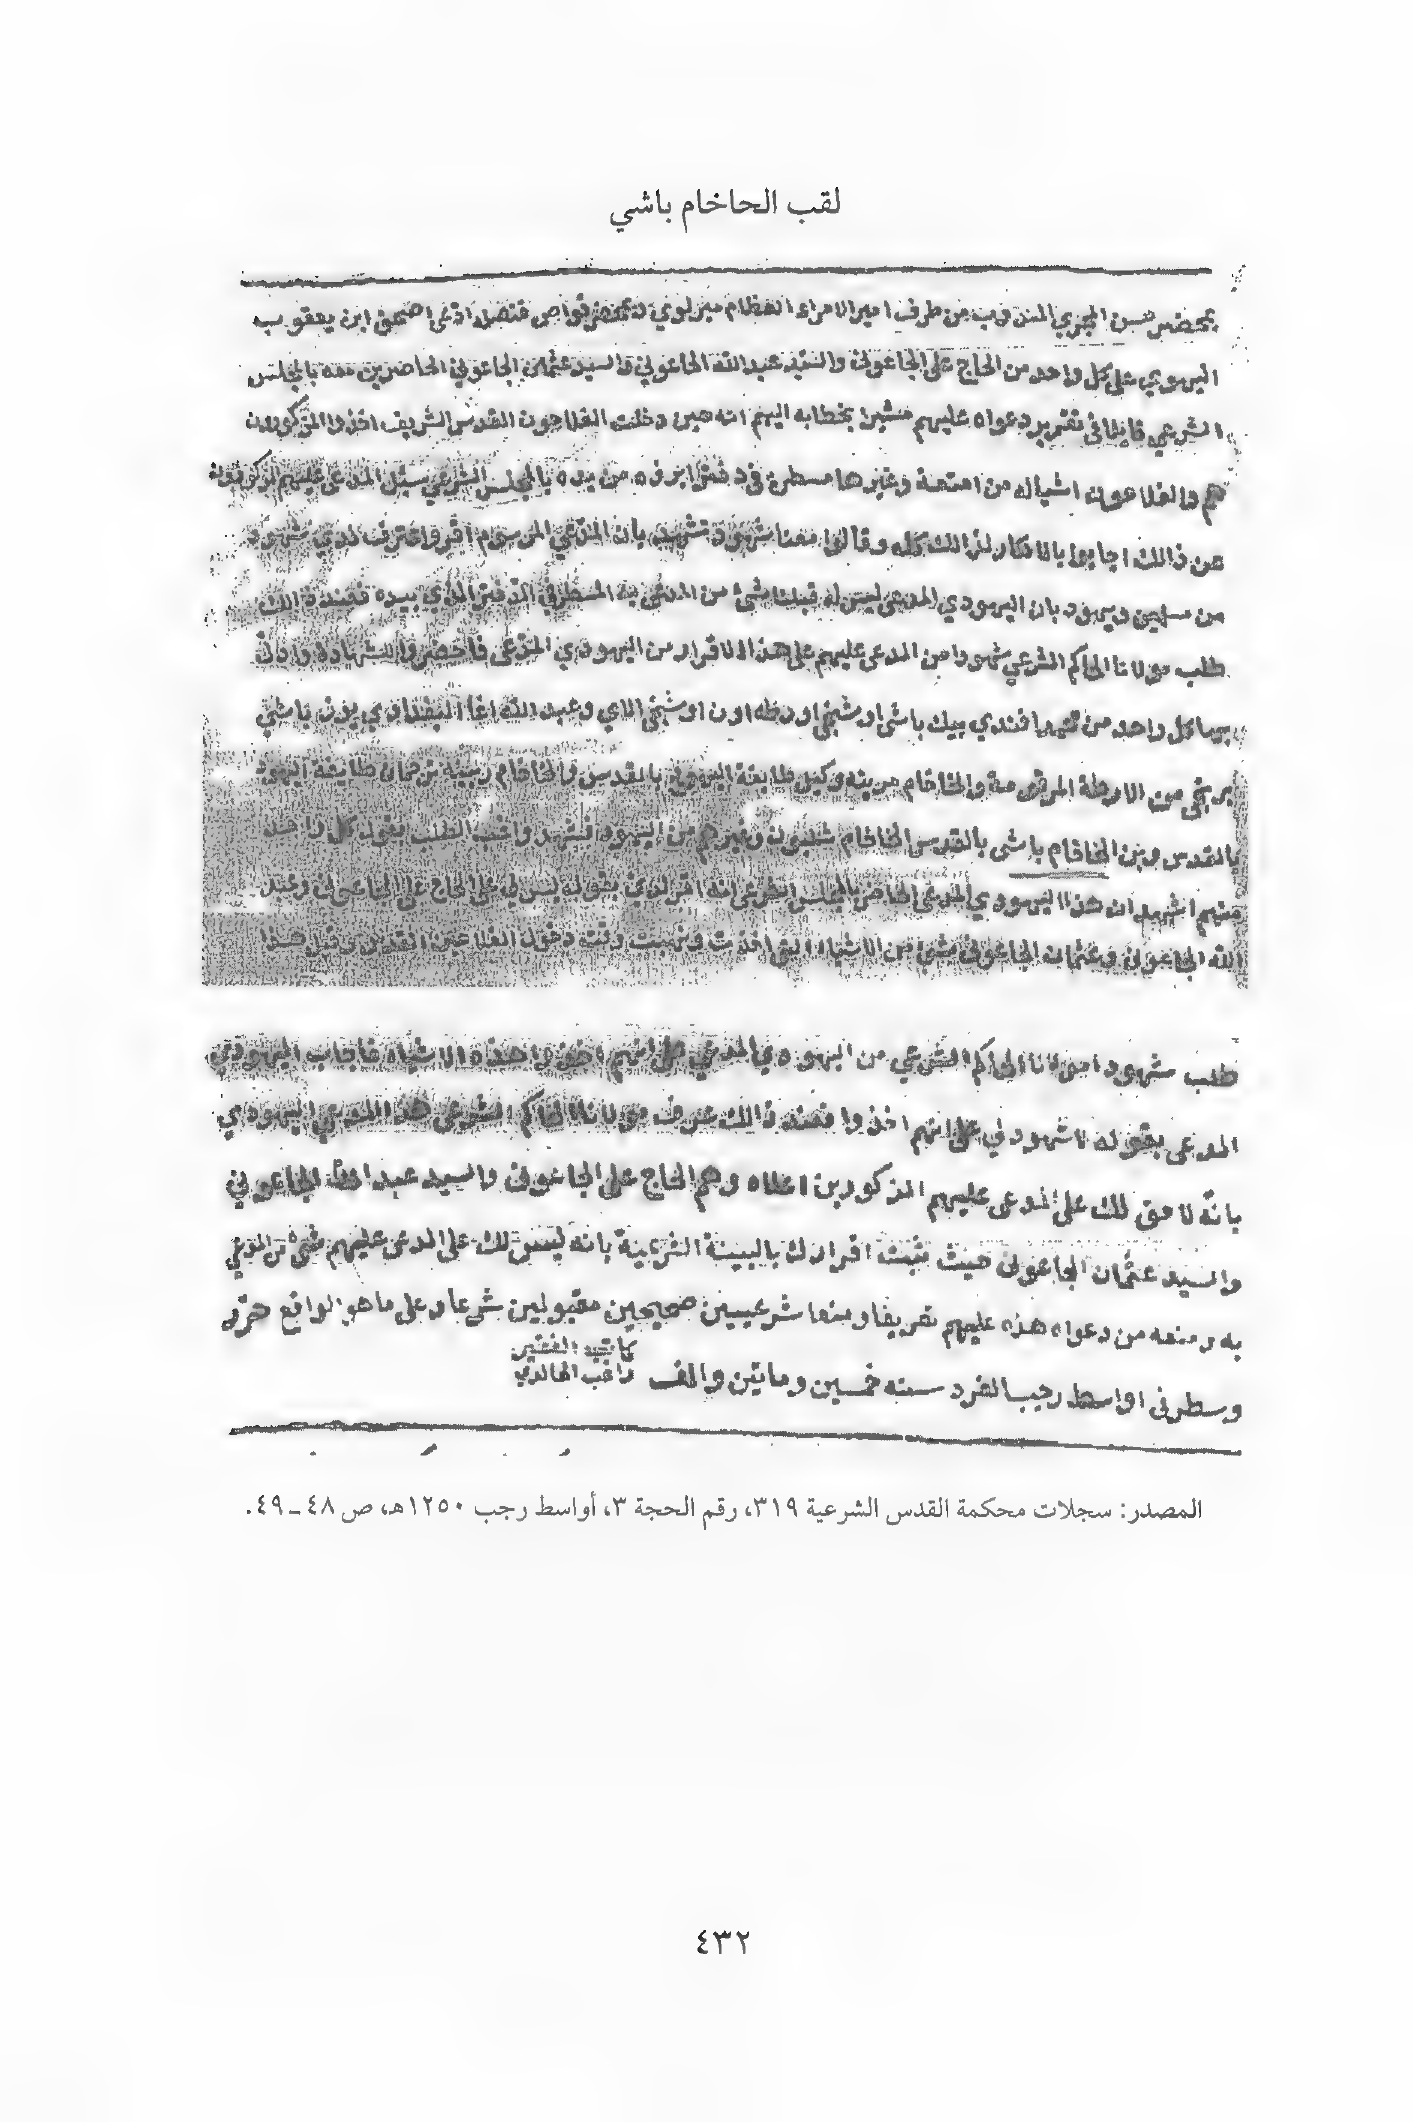 لقب الحاخام باشي
بمحضر حسن الجري المندوب من طرف امير الامراء العظام ميرلوي ادعى اصحق ابن يعقوب
اليهودي على كل واحد من الحاج علي الجاعوني والسيد عبد الله الجاعوني والسيد عثمان الجاعوني الحاضرين معه بالمجلس
الشرعي قايلا في تقرير دعواه عليهم مشيرا بخطابه اليهم انه حين دخلت الفلاحون القدس الشريف اخذوا المذكورون
هم والفلاحون اشياله من امتعة وغيرها مسطرة في دفتر ابرزه من يده بالمجلس الشرعي سيل المدعى عليهم المذكورون
عن ذالك اجابوا بالانكار لذالك كله وقالوا معنا شهود تشهد بان المدعي المرسوم اقر واعترف لدي شهود
من مسلمين ويهود بان اليهودي المدعي ليس له قبلنا شئ من المدعى به المسطر في الدفتر الذي بيده فعند ذالك
طلب مولانا الحاكم الشرعي شهودا من المدعى عليهم على هذا الاقرار من اليهودي المدعي فاحضروا للشهادة وادلى
بها كل واحد من افندي بيك باشي اوشنجي اورطه اون اوشنجي الاي وعبد الله اغا البغدادي يوز باشي
برنجي من الاورطة المرقومة والخاخام وكيل طايفة اليهود بالقدس والخاخام ترجمان طايفة اليهود
بالقدس وبين الخاخام باشي بالقدس الخاخام شلمون وغيرهم من اليهود فشهد واغب الطلب بقوله كل واحد
منهم اشهد ان هذا اليهودي المدعي الحاضر بالمجلس الشرعي انه اقر لدي بقوله ليس لي على الحاج علي الجاعوني وعبد
الله الجاعوني وعثمان الجاعوني شئ من الاشياء التي اخذت ونهبت وقت دخول الفلاحين القدس وقبل هذا
طلب شهودا مولانا الحاكم الشرعي من اليهودي المدعي على انهم اخذوا هذه الاشياء فاجاب اليهودي
المدعي بقوله لا شهود لي على انهم اخذوا فعند ذالك عرف مولانا الحاكم الشرعي هذا المدعي اليهودي
بانه لا حق لك على المدعى عليهم المذكورين اعلاه وهم الحاج علي الجاعوني والسيد عبد الله الجاعوني
والسيد عثمان الجاعوني حيث ثبت اقرارك بالبينة الشرعية بانه ليس لك على المدعى عليهم شئ من المدعي
به ومنعه من دعواه هذه عليهم تعريفا ومنعا شرعيين صحيحين مقبولين شرعا وعلى ما هو الواقع حرر
وسطر في اواسط رجب الفرد سنه خمسين ومايتين والف
كاتبه الفقير
راغب الخالدي
المصدر: سجلات محكمة القدس الشرعية ٣١٩، رقم الحجة ٣، أواسط رجب ١٢٥٠هـ، ص ٤٨ ـ ٤٩.
٤٣٢